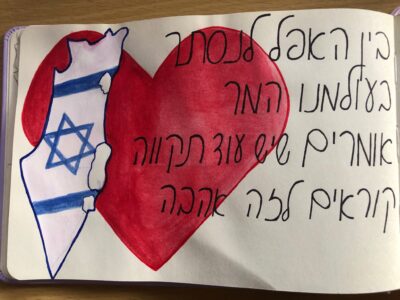 בין האפל לנסתר
בעולמנו המר
אומרים שיש עוד תקווה
קוראים לזה אהבה